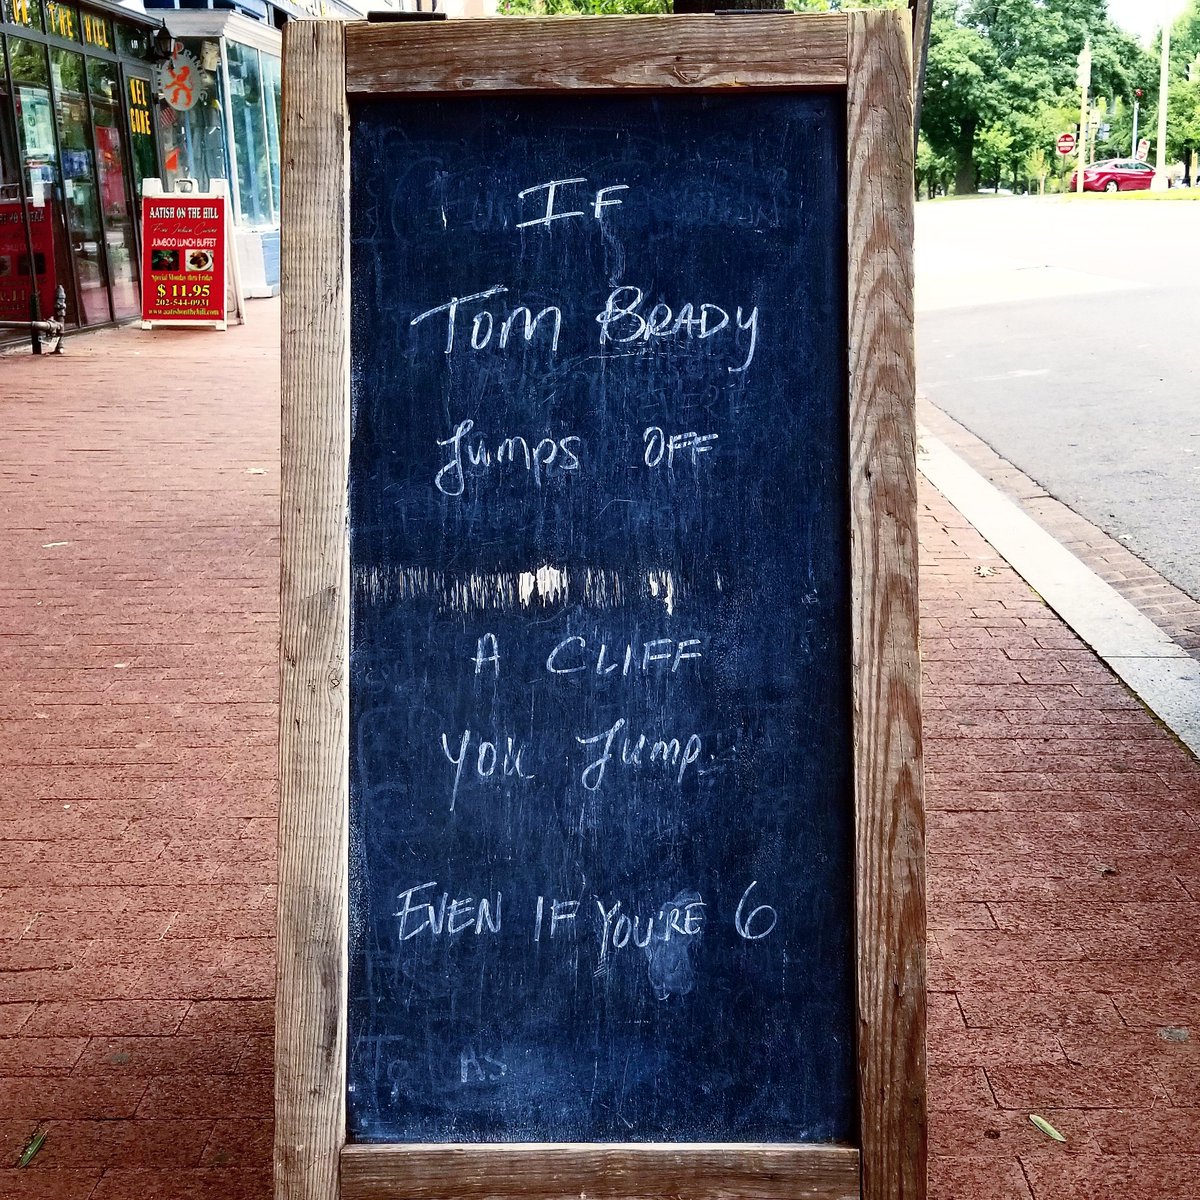 THE HILL
WEL
COME
AATISH ON THE HILL
Fine Indian Cuisine
JUMBOO LUNCH BUFFET
Special Monday thru Friday
$ 11.95
202-544-0931
www.aatishonthehill.com
IF
TOM BRADY
JUMPS OFF
A CLIFF
YOU JUMP.
EVEN IF YOU'RE 6
To AS